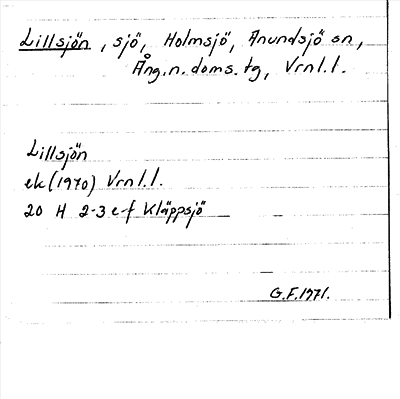 Lillsjön, sjö, Holmsjö, Anundsjö sn,
Ång.n.doms.tg, Vrnl.l.
Lillsjön
ek (1970) Vrnl.l.
20 H 2-3 e-f Kläppsjö
G.F.1971.